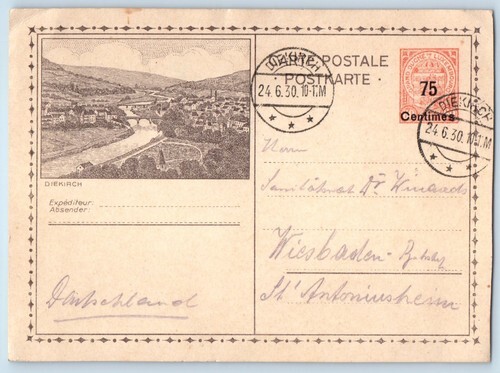 CARTE POSTALE
· POSTKARTE ·
DIEKIRCH
24.6.30.10-11.M
75
Centimes
DIEKIRCH
24.6.30.10-11.M
DIEKIRCH
Expéditeur:
Absender:
Herrn
Sanitätsrat Dr
Wiesbaden-
St Antoniusheim
Deutschland